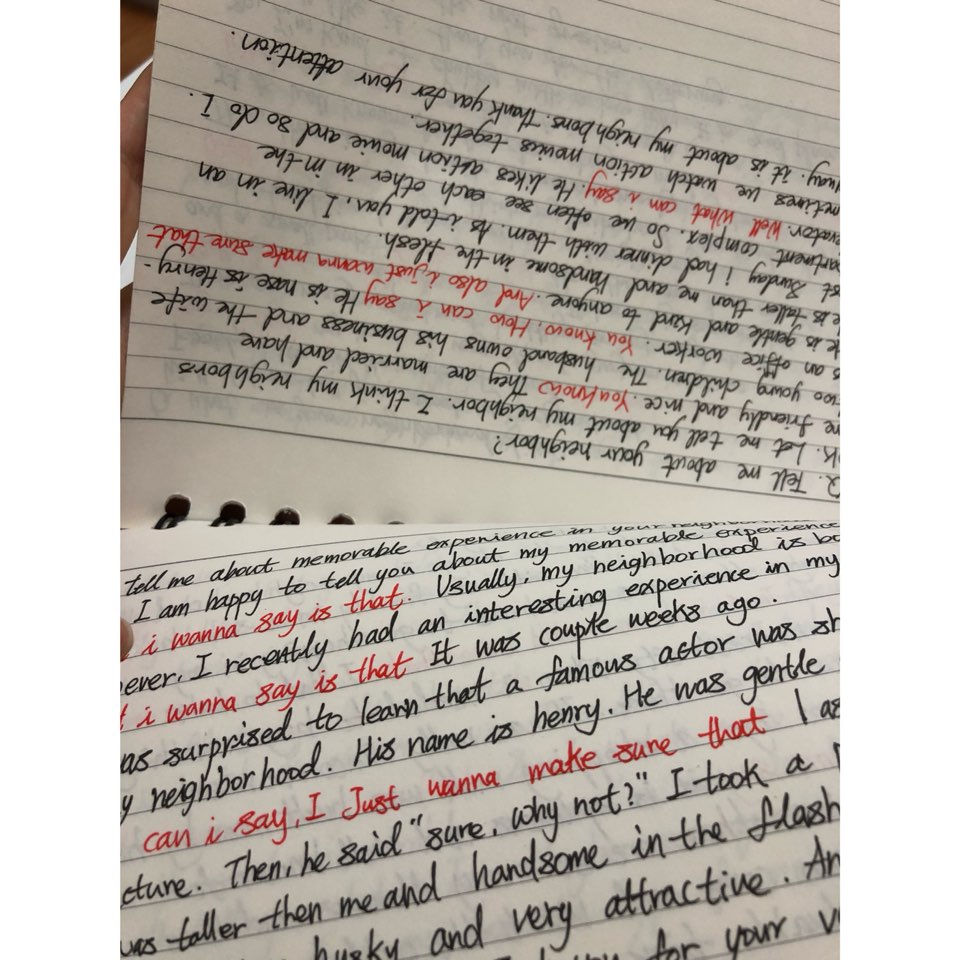 2. Tell me about your neighbor?
k. Let me tell you about my neighbor. I think my neighbors
friendly and nice. You know They are married and have
two young children. The husband owns his business and the wife
an office worker. You know, How can i say He is nase is Henry.
is gentle and kind to anyone. And also i just wanna make sure that
is taller than me and handsome in the flesh.
Sunday I had dinner with them. As i told you, I live in an
partment complex. So we often see each other in in the
evator. Well what can i say. He likes action movie and so do I.
metimes we watch action movies together.
way. it is about my neighbors. Thank you for your attention.
tell me about memorable experience in your
I am happy to tell you about my memorable experience
i wanna say is that. Usually, my neighborhood is bo
ever, I recently had an interesting experience in my
i wanna say is that It was couple weeks ago.
as surprised to learn that a famous actor was sh
y neighborhood. His name is henry. He was gentle
can i say, I Just wanna make sure that I as
cture. Then, he said "sure, why not?" I took a
was taller then me and handsome in the flash
husky and very attractive. An
for your v